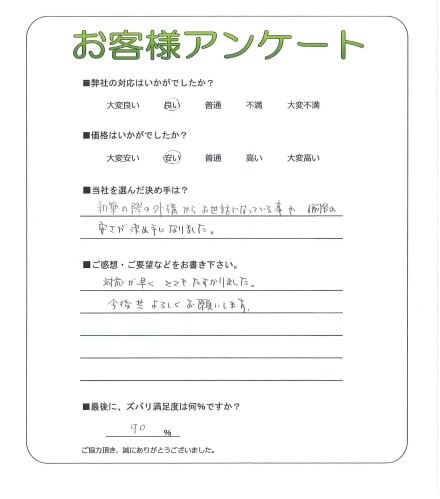 お客様アンケート
■弊社の対応はいかがでしたか？
大変良い 良い 普通 不満 大変不満
■価格はいかがでしたか？
大変安い 安い 普通 高い 大変高い
■当社を選んだ決め手は？
新築の際の外構からお世話になっている事や 価格の
安さが決め手になりました。
■ご感想・ご要望などをお書き下さい。
対応が早く とても たすかりました。
今後共 よろしく お願いします。
■最後に、ズバリ満足度は何％ですか？
90 ％
ご協力頂き、誠にありがとうございました。